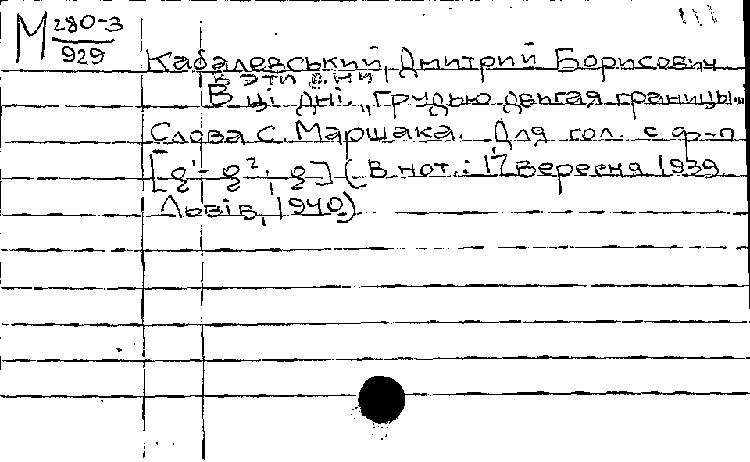 М 280-3
929
Кабалевський, Дмитрий Борисович
В эти дни
В ці дні. „Грудью двигая границы"
Слова С. Маршака. Для гол. с ф-п
[g¹- g²; g] (В нот.: 17 вересня 1939
Львів, 1940)